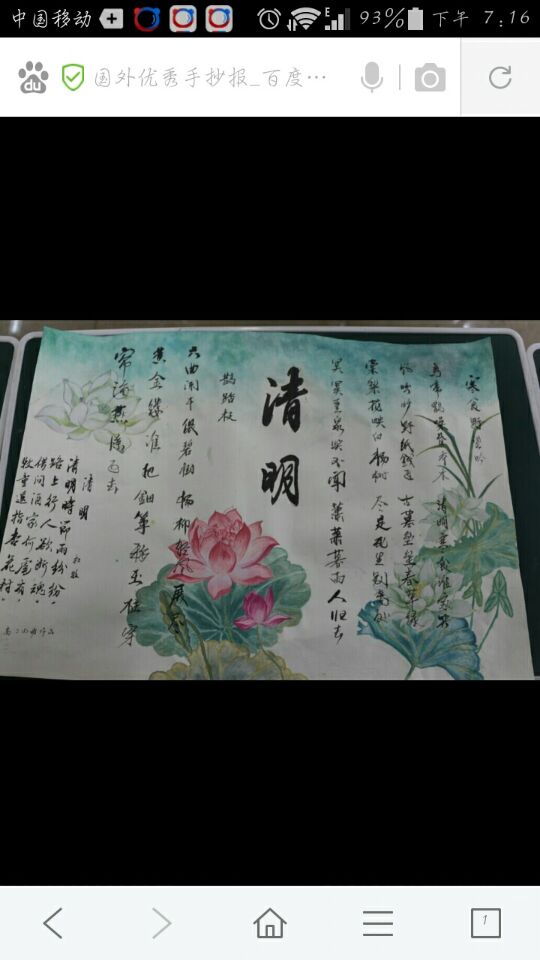 中国移动
93%
下午 7:16
国外优秀手抄报_百度…
寒食野望吟
清明寒食谁家哭
风吹旷野纸钱飞 古墓垒垒春草绿
棠梨花映白杨树 尽是死生别离处
冥冥重泉哭不闻 萧萧暮雨人归去
清明
鹊踏枝
六曲阑干偎碧树 杨柳轻风展
黄金缕 谁把钿筝移玉柱 穿
帘海燕
清明
杜牧
清明时节雨纷纷
路上行人欲断魂
借问酒家何处有
牧童遥指杏花村
1